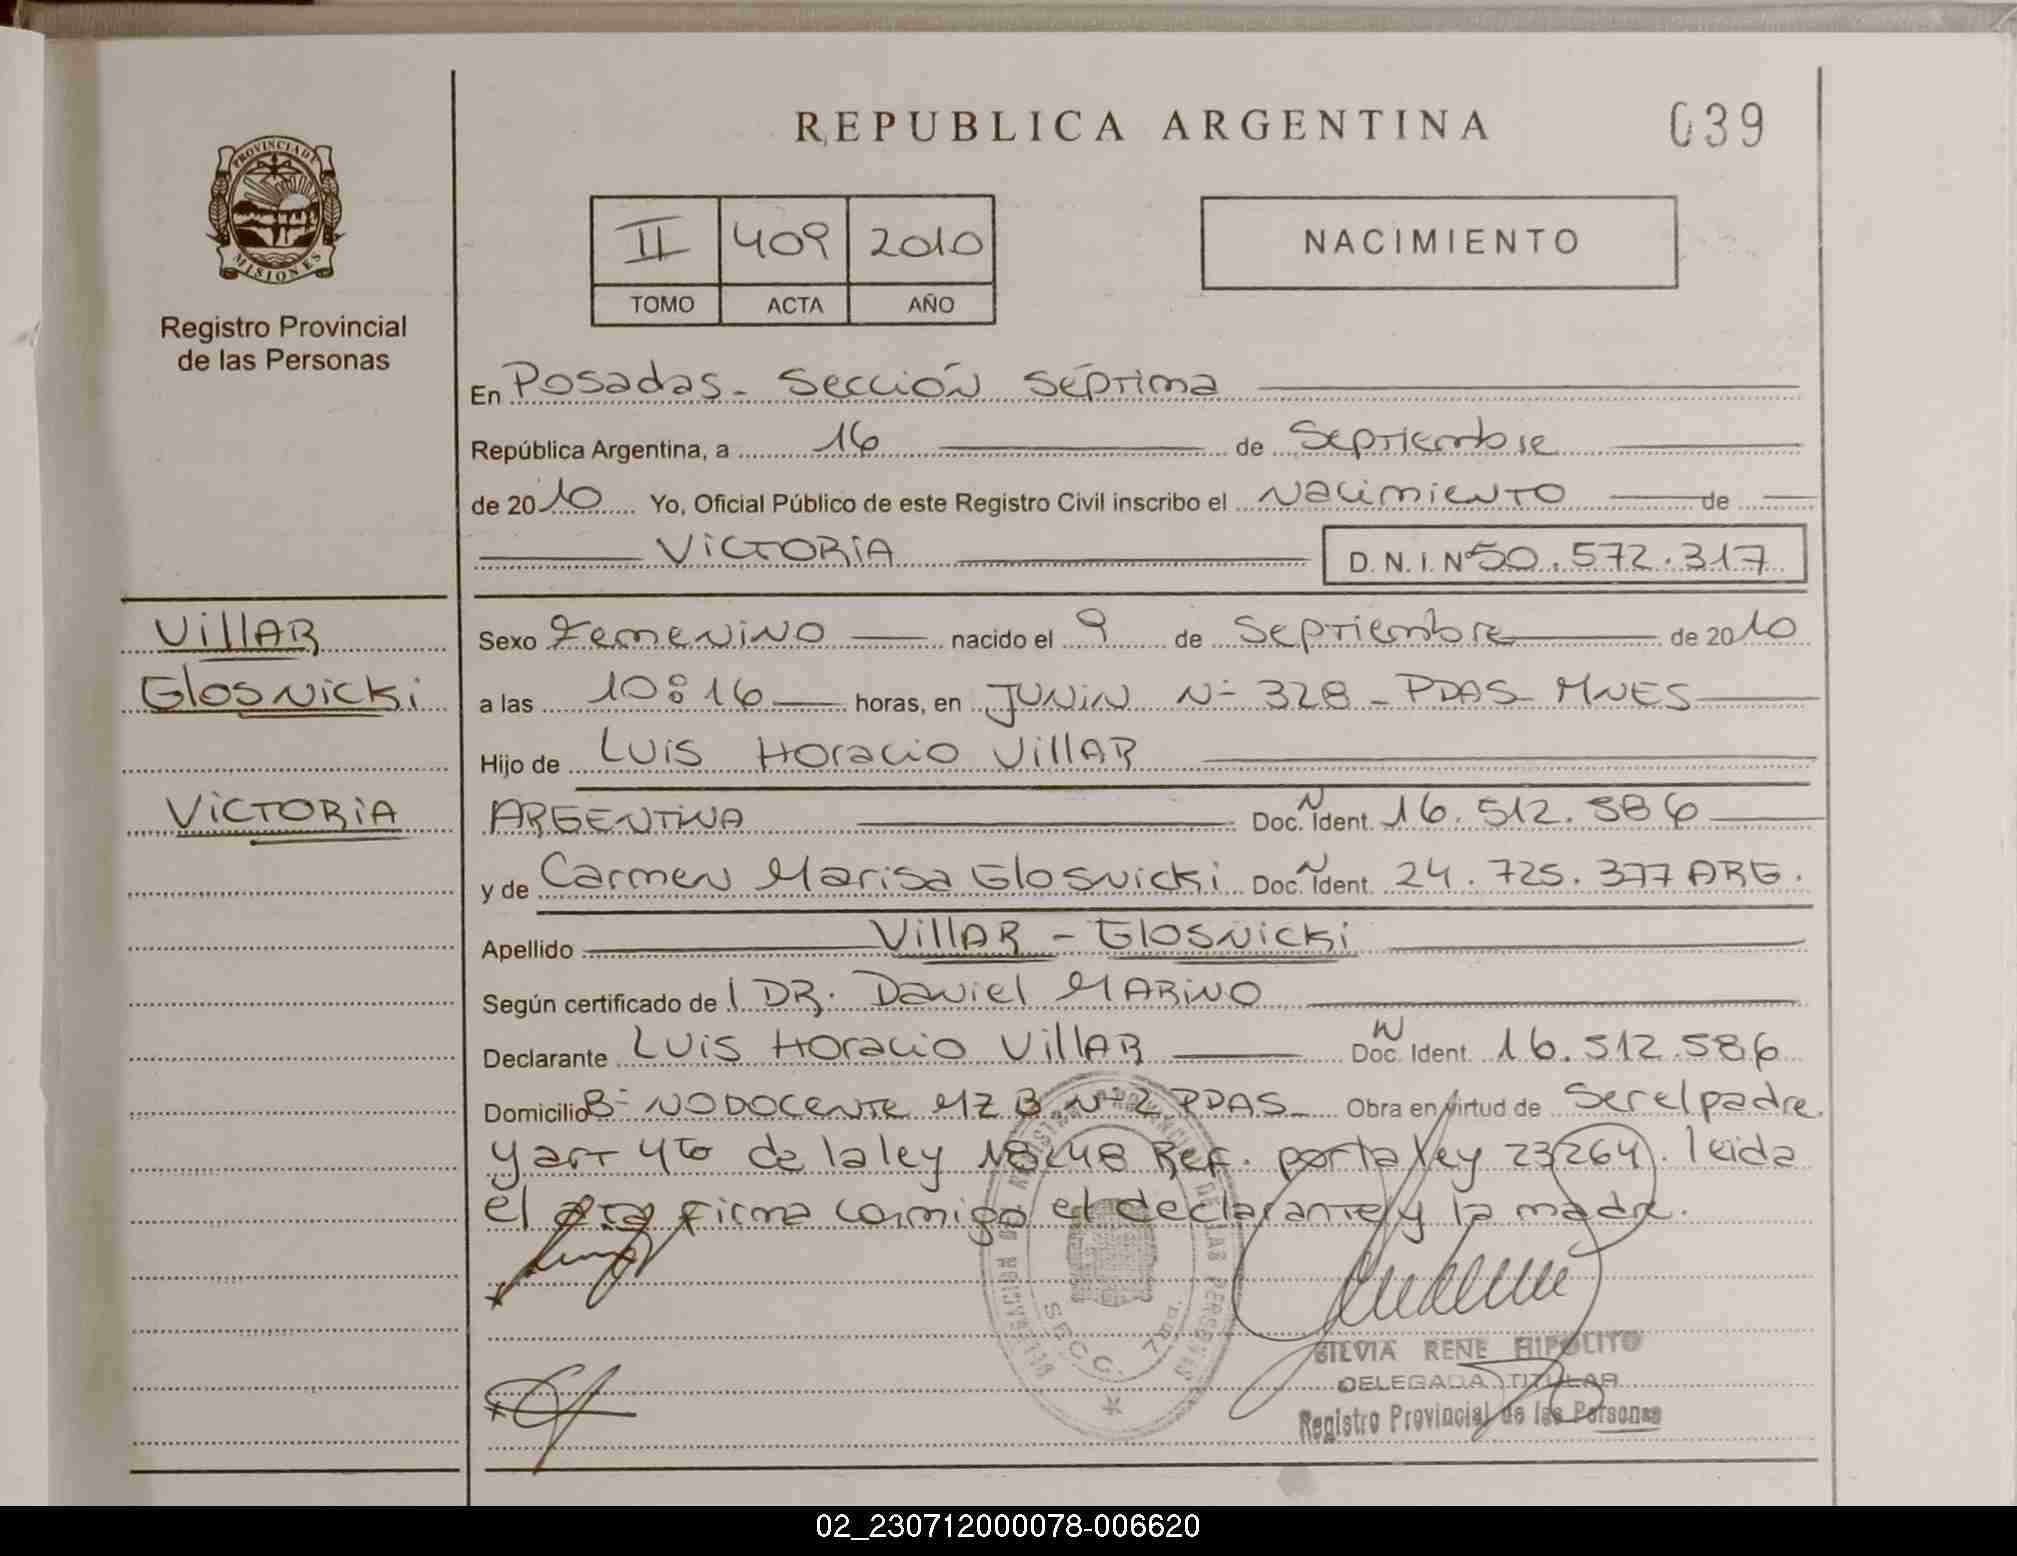 REPUBLICA ARGENTINA
039
PROVINCIA DE
MISIONES
Registro Provincial
de las Personas
II 409 2010
TOMO ACTA AÑO
NACIMIENTO
En Posadas - Sección Séptima
República Argentina, a 16 de Septiembre
de 2010 Yo, Oficial Público de este Registro Civil inscribo el Nacimiento de
VICTORIA D.N.I. Nº 50.572.317
VillAR
Glosnicki
VICTORIA
Sexo Femenino nacido el 9 de Septiembre de 2010
a las 10:16 horas, en JUNIN Nº 328 - PDAS - MNES
Hijo de Luis Horacio VillAR
ARGENTINA Doc. N Ident. 16.512.586
y de Carmen Marisa Glosnicki Doc. N Ident. 24.725.377 ARG.
Apellido VillAR - Glosnicki
Según certificado de l DR. Daniel MARINO
Declarante Luis Horacio VillAR Doc. N Ident. 16.512.586
Domicilio Bº NODOCENTE MZ B Nº 2 PDAS - Obra en virtud de Ser el padre
y art 4to de la ley 18248 Ref. por la ley 23264. leida
el acta firma conmigo el declarante y la madre.
SECC. 7ma.
SILVIA RENE HIPOLITO
DELEGADA TITULAR
Registro Provincial de las Personas
02_230712000078-006620